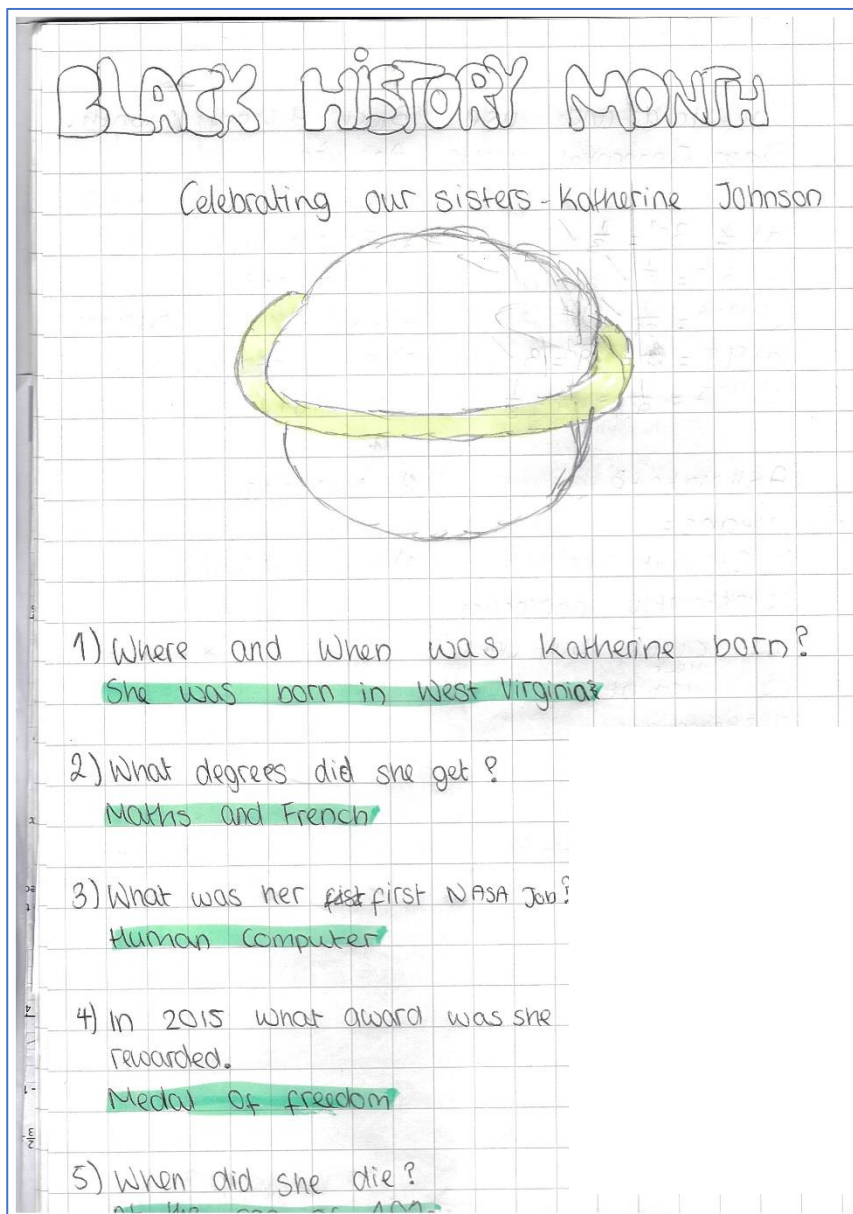 BLACK HISTORY MONTH
Celebrating our sisters - Katherine Johnson
1) Where and When was Katherine born?
She was born in West Virginia
2) What degrees did she get?
Maths and French
3) What was her first NASA Job?
Human Computer
4) In 2015 what award was she
rewarded.
Medal Of freedom
5) When did she die?